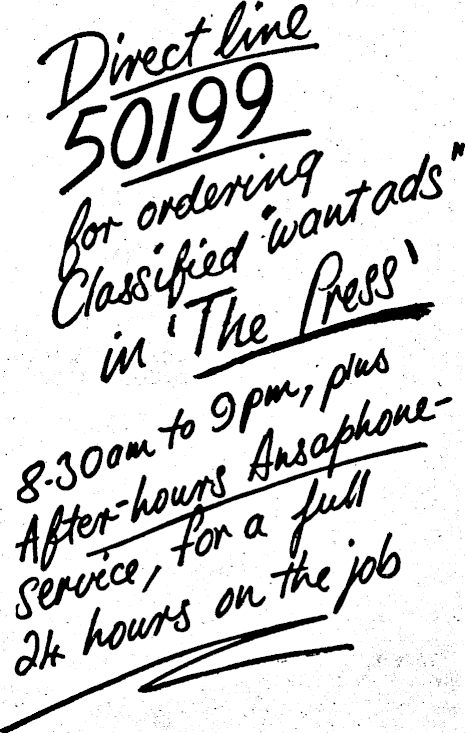 Direct line
50199
for ordering
Classified "want ads"
in 'The Press'
8-30am to 9pm, plus
After-hours Ansaphone-
service, for a full
24 hours on the job